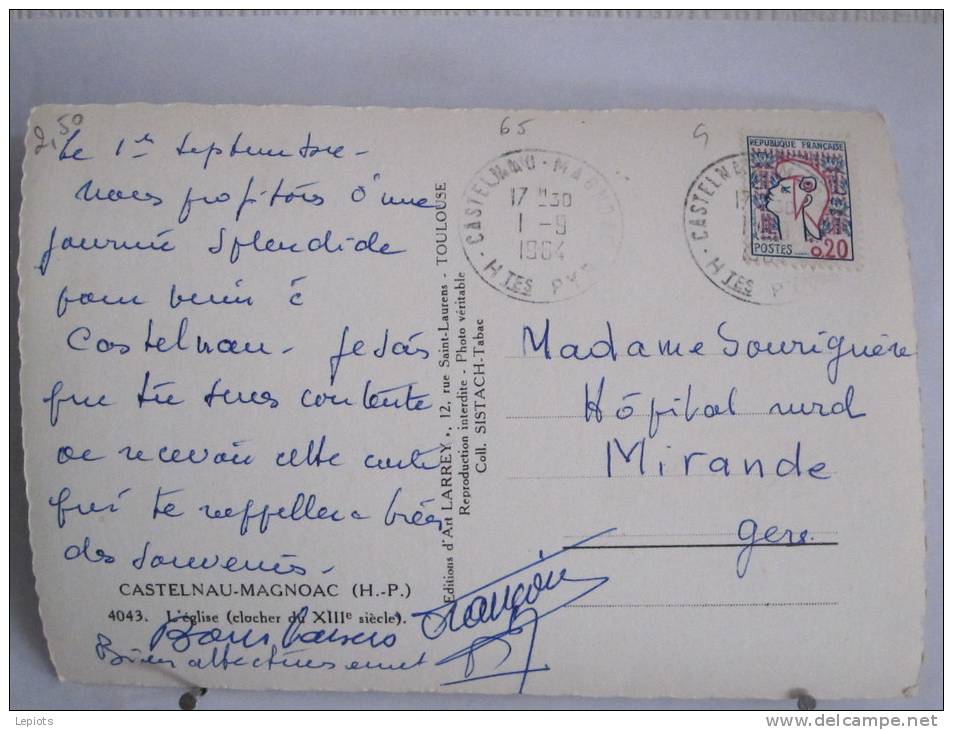 2,50
65
le 1er septembre -
nous profitons d'une
journée splendide
pour venir à
Castelnau - je sais
que tu seras contente
de recevoir cette carte
qui te rappellera bien
des souvenirs -
CASTELNAU-MAGNOAC (H.-P.)
4043. L'église (clocher du XIIIe siècle).
Bons baisers
Bien affectueusement
François
Editions d'Art LARREY, 12, rue Saint-Laurens - TOULOUSE
Reproduction interdite - Photo véritable
Coll. SISTACH-Tabac
CASTELNAU-MAGNOAC
17 H 30
1 -9
1964
HTES PYR
CASTELNAU
HTES PY
REPUBLIQUE FRANÇAISE
POSTES
0,20
Madame Souriguère
Hôpital rural
Mirande
Gers
Lepiots
www.delcampe.net